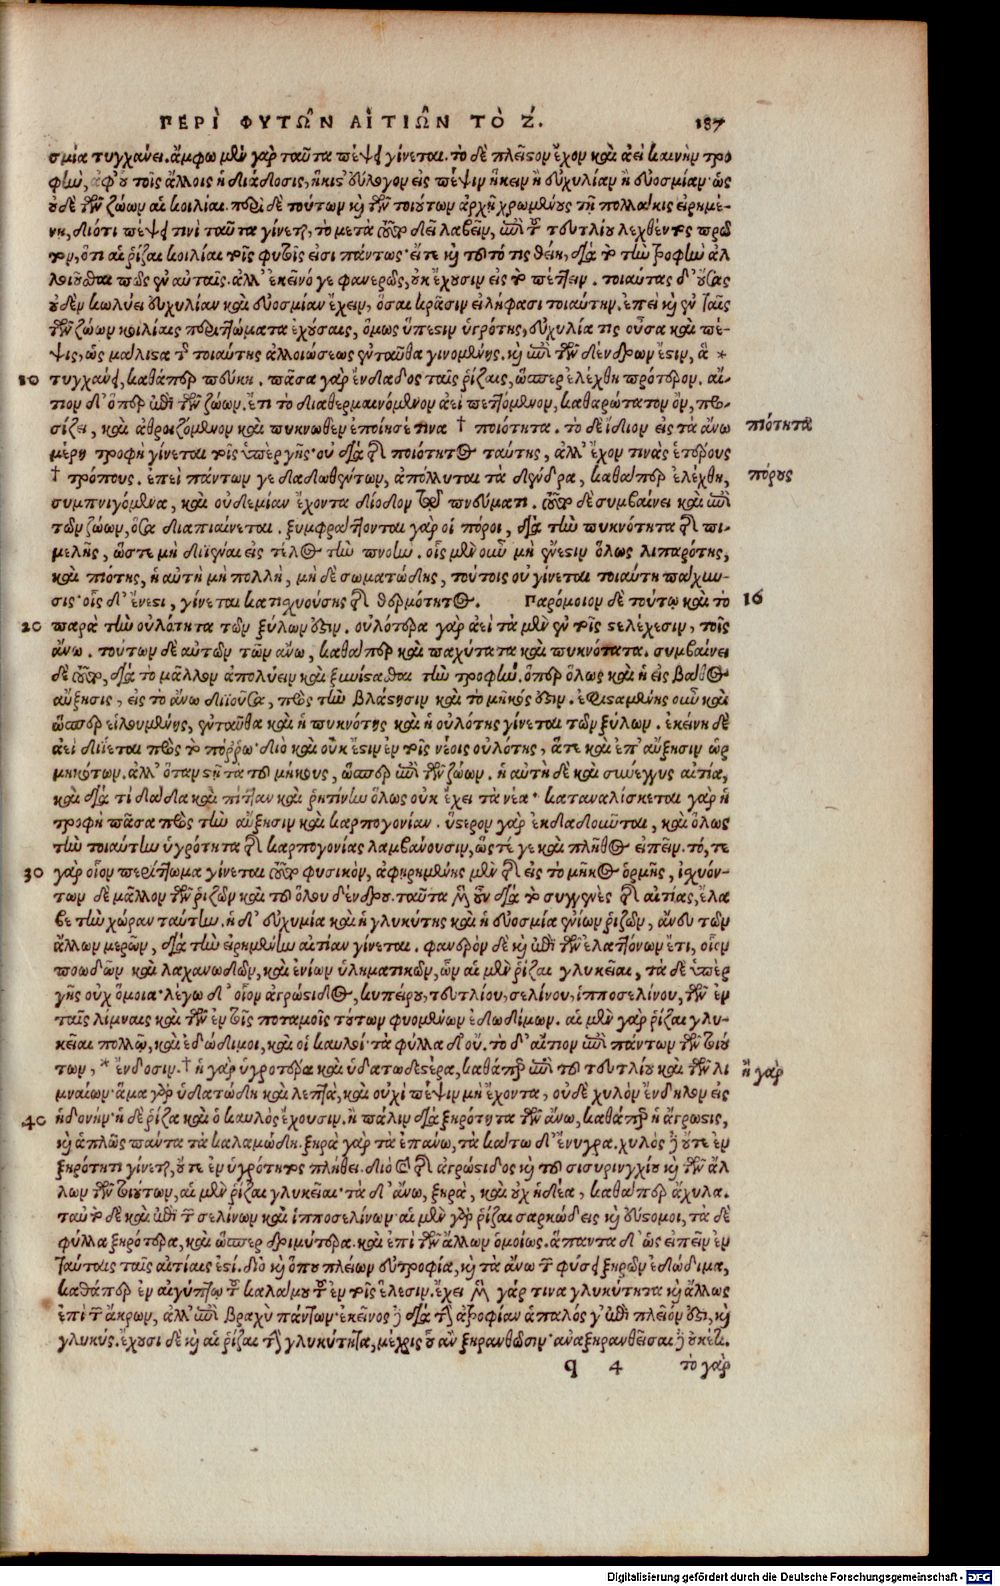 ΠΕΡῚ ΦΥΤΩ͂Ν ΑἸΤΙΩ͂Ν ΤῸ Ζ΄. 187
σμία τυγχάνει. ἄμφω μὲν γὰρ ταῦτα πέψει γίνεται. τὸ δὲ πλεῖστον ἔχον καὶ ἀεὶ καινὴν τρο
φὴν, ἀφ' οὗ τοῖς ἄλλοις ἡ διάδοσις, ἥκιστ' εὔλογον εἰς πέψιν ἥκειν ἢ εὐχυλίαν ἢ εὐοσμίαν· ὡς
οὐδὲ τῶν ζώων αἱ κοιλίαι. περὶ δὲ τούτων καὶ τῶν τοιούτων ἀρχῇ χρωμένους τῇ πολλάκις εἰρημέ-
νῃ, διότι πέψει τινὶ ταῦτα γίνεται, τὸ μετὰ τοῦτο δεῖ λαβεῖν, ἐπὶ τοῦ τευτλίου λεχθέντος πρό
τερον, ὅτι αἱ ῥίζαι κοιλίαι τοῖς φυτοῖς εἰσι πάντως· εἴτε καὶ τοῦτό τις θείη, διὰ τὸ τὴν τροφὴν ἀλ
λοιοῦσθαι πως ἐν αὐταῖς. ἀλλ' ἐκεῖνό γε φανερῶς, οὐκ ἔχουσιν εἰς τὸ πέττειν. τοιαύτας δ' οὔσας
οὐδὲν κωλύει εὐχυλίαν καὶ εὐοσμίαν ἔχειν, ὅσαι κρᾶσιν εἰλήφασι τοιαύτην. ἐπεὶ καὶ ἐν ταῖς
τῶν ζώων κοιλίαις περιττώματα ἐχούσαις, ὅμως ὕπεστιν ὑγρότης, εὐχυλία τις οὖσα καὶ πέ-
ψις, ὡς μάλιστα τῆς τοιαύτης ἀλλοιώσεως ἐνταῦθα γινομένης. καὶ ἐπὶ τῶν δένδρων ἔστιν, ἃ *
10 τυγχάνει, καθάπερ πεύκη. πᾶσα γὰρ ἔνδαδος ταῖς ῥίζαις, ὥσπερ ἐλέχθη πρότερον. αἴ-
τιον δ' ὅπερ ἐπὶ τῶν ζώων. ἔτι τὸ διαθερμαινόμενον ἀεὶ πεττόμενον, καθαρώτατον ὂν, προ-
σίζει, καὶ ἀθροιζόμενον καὶ πυκνωθὲν ἐποίησέ τινα † ποιότητα. τὸ δεΐδιον εἰς τὰ ἄνω πιότητα
μέρη τροφὴ γίνεται τοῖς ὑπὲρ γῆς· οὐ διὰ τῆς ποιότητος ταύτης, ἀλλ' ἔχον τινὰς ἑτέρους
† τρόπους. ἐπεὶ πάντων γε δᾳδωθέντων, ἀπόλλυται τὰ δένδρα, καθάπερ ἐλέχθη, πόρους
συμπνιγόμενα, καὶ οὐδεμίαν ἔχοντα δίοδον τῷ πνεύματι. τοῦτο δὲ συμβαίνει καὶ ἐπὶ
τῶν ζώων, ὅσα διαπιαίνεται. ξυμφράττονται γὰρ οἱ πόροι, διὰ τὴν πυκνότητα τῆς πι-
μελῆς, ὥστε μὴ διϊέναι εἰς τέλος τὴν πνοήν. οἷς μὲν οὖν μὴ ἔνεστιν ὅλως λιπαρότης,
καὶ πιότης, ἢ αὐτὴ μὴ πολλὴ, μὴ δὲ σωματώδης, τούτοις οὐ γίνεται τοιαύτη πάχυν-
σις· οἷς δ' ἔνεστι, γίνεται κατισχυούσης τῆς θερμότητος. Παρόμοιον δὲ τούτῳ καὶ τὸ 16
20 παρὰ τὴν οὐλότητα τῶν ξύλων ἐστίν. οὐλότερα γὰρ ἀεὶ τὰ μὲν ἐν τοῖς στελέχεσιν, τοῖς
ἄνω. τούτων δὲ αὐτῶν τῶν ἄνω, καθάπερ καὶ παχύτατα καὶ πυκνότατα. συμβαίνει
δὲ τοῦτο, διὰ τὸ μᾶλλον ἀπολύειν καὶ ξυνίστασθαι τὴν τροφήν. ὅπερ ὅλως καὶ ἡ εἰς βάθος
αὔξησις, εἰς τὸ ἄνω διϊοῦσα, πρὸς τὴν βλάστησιν καὶ τὸ μῆκός ἐστιν. ἐφισταμένης οὖν καὶ
ὥσπερ εἱλουμένης, ἐνταῦθα καὶ ἡ πυκνότης καὶ ἡ οὐλότης γίνεται τῶν ξύλων. ἐκείνη δὲ
ἀεὶ διΐεται πρὸς τὸ πόῤῥω· διὸ καὶ οὐκ ἔστιν ἐν τοῖς νέοις οὐλότης, ἅτε καὶ ἐπ' αὔξησιν ὡρ
μηκότων. ἀλλ' ὅταν στῇ τὰ τοῦ μήκους, ὥσπερ ἐπὶ τῶν ζώων. ἡ αὐτὴ δὲ καὶ σύνεγγυς αἰτία,
καὶ διὰ τί δᾷδα καὶ πίτταν καὶ ῥητίνην ὅλως οὐκ ἔχει τὰ νέα· καταναλίσκεται γὰρ ἡ
τροφὴ πᾶσα πρὸς τὴν αὔξησιν καὶ καρπογονίαν. ὕστερον γὰρ ἐκδᾳδοῦται, καὶ ὅλως
τὴν τοιαύτην ὑγρότητα τῆς καρπογονίας λαμβάνουσιν, ὥστέ γε καὶ πλῆθος εἰπεῖν. τό, τε
30 γὰρ οἷον περίττωμα γίνεται τοῦτο φυσικὸν, ἀφῃρημένης μὲν τῆς εἰς τὸ μῆκος ὁρμῆς, ἰσχυόν-
των δὲ μᾶλλον τῶν ῥιζῶν καὶ τοῦ ὅλου δένδρου. ταῦτα μὲν οὖν διὰ τὸ συγγενὲς τῆς αἰτίας, ἔλα
βε τὴν χώραν ταύτην. ἡ δ' εὐχυμία καὶ ἡ γλυκύτης καὶ ἡ εὐοσμία ἐνίων ῥιζῶν, ἄνευ τῶν
ἄλλων μερῶν, διὰ τὴν εἰρημένην αἰτίαν γίνεται. φανερὸν δὲ καὶ ἐπὶ τῶν ἐλαττόνων ἔτι, οἷον
ποωδῶν καὶ λαχανωδῶν, καὶ ἐνίων ὑληματικῶν, ὧν αἱ μὲν ῥίζαι γλυκεῖαι, τὰ δὲ ὑπὲρ
γῆς οὐχ ὅμοια· λέγω δ' οἷον ἀγρώστιδος, κυπείρου, τευτλίου, σελίνου, ἱπποσελίνου, τῶν ἐν
ταῖς λίμναις καὶ τῶν ἐν τοῖς ποταμοῖς τούτων φυομένων ἐδωδίμων. αἱ μὲν γὰρ ῥίζαι γλυ-
κεῖαι πολλῷ, καὶ ἐδώδιμοι, καὶ οἱ καυλοὶ· τὰ φύλλα δ' οὔ. τὸ δ' αἴτιον ἐπὶ πάντων τῶν τοιού
των, * ἔνδοσιν. † ἡ γὰρ ὑγροτέρα καὶ ὑδατωδεστέρα, καθάπερ ἐπὶ τοῦ τευτλίου καὶ τῶν λι ἢ γὰρ
μναίων· ἅμα γὰρ ὑδατώδη καὶ λεπτὰ, καὶ οὐχὶ πέψιν μὴ ἔχοντα, οὐδὲ χυλὸν ἔνδηλον εἰς
40 ἡδονήν· ἡ δὲ ῥίζα καὶ ὁ καυλὸς ἔχουσιν. ἢ πάλιν διὰ ξηρότητα τῶν ἄνω, καθάπερ ἡ ἄγρωστις,
καὶ ἁπλῶς πάντα τὰ καλαμώδη. ξηρὰ γὰρ τὰ ἐπάνω, τὰ κάτω δ' ἔνυγρα. χυλὸς δὲ οὔτε ἐν
ξηρότητι γίνεται, οὔτε ἐν ὑγρότητος πλήθει. διὸ καὶ τῆς ἀγρώστιδος καὶ τοῦ σισυριγχίου καὶ τῶν ἄλ
λων τῶν τοιούτων, αἱ μὲν ῥίζαι γλυκεῖαι· τὰ δ' ἄνω, ξηρὰ, καὶ οὐχ ἡδέα, καθάπερ ἄχυλα.
ταὐτὸ δὲ καὶ ἐπὶ τῶν σελίνων καὶ ἱπποσελίνων· αἱ μὲν γὰρ ῥίζαι σαρκώδεις καὶ εὔστομοι, τὰ δὲ
φύλλα ξηρότερα, καὶ ὥσπερ δριμύτερα. καὶ ἐπὶ τῶν ἄλλων ὁμοίως. ἅπαντα δ' ὡς εἰπεῖν ἐν
ταύταις ταῖς αἰτίαις ἐστί. διὸ καὶ ὅπου πλείων εὐτροφία, καὶ τὰ ἄνω τῶν φύσει ξηρῶν ἐδώδιμα,
καθάπερ ἐν αἰγύπτῳ τοῦ καλάμου τοῦ ἐν τοῖς ἕλεσιν. ἔχει μὲν γάρ τινα γλυκύτητα καὶ ἄλλως
ἐπὶ τῶν ἄκρων, ἀλλ' ἐπὶ βραχὺ πάντων· ἐκεῖνος δὲ διὰ τὴν εὐτροφίαν ἁπαλός γ' ἐπὶ πλεῖόν ἐστι, καὶ
γλυκύς. ἔχουσι δὲ καὶ αἱ ῥίζαι τὴν γλυκύτητα, μέχρις οὗ ἂν ξηρανθῶσιν· ἀναξηρανθεῖσαι δὲ οὐκέτι.
q 4 τὸ γὰρ
Digitalisierung gefördert durch die Deutsche Forschungsgemeinschaft - DFG